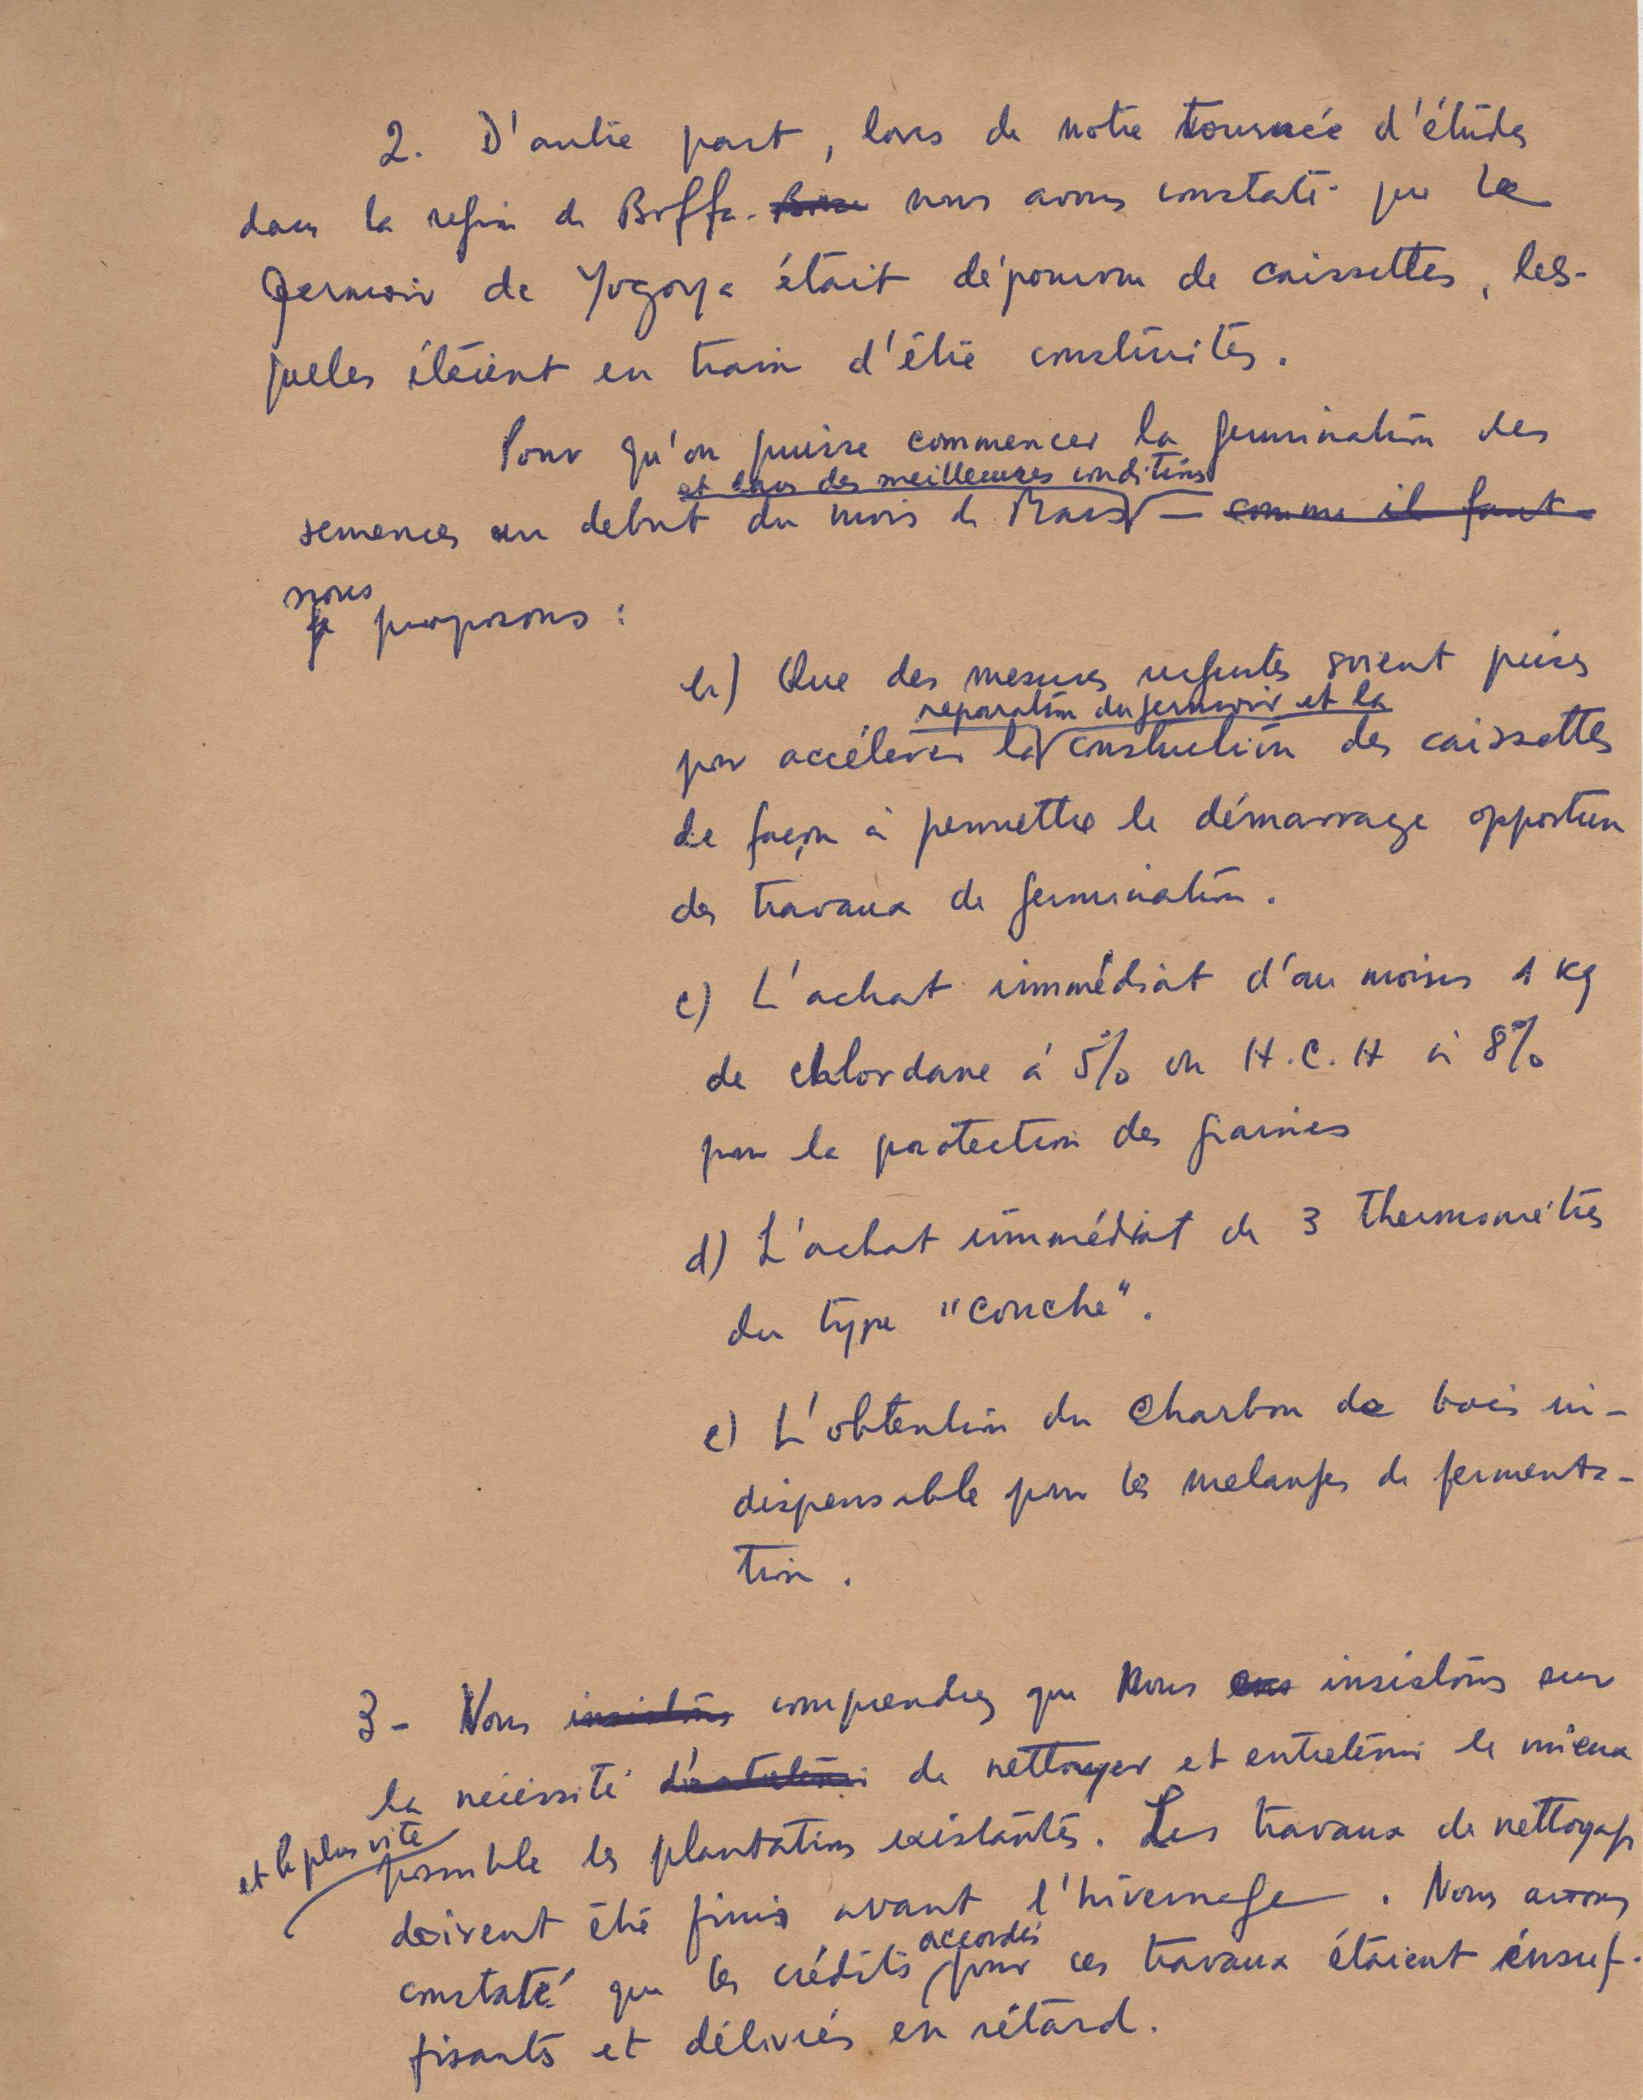 2. D'autre part, lors de notre tournée d'études
dans la region de Boffa. nous avons constaté que le
Germoir de Yogoya était dépourvu de caissettes, les-
quelles étaient en train d'être construites.
Pour qu'on puisse commencer la germination des
et dans des meilleures conditions
semences au debut du mois de Mars — comme il faut -
nous
proposons :
b) Que des mesures urgentes soient prises
reparation du germoir et la
pour accélerer la construction des caissettes
de façon à permettre le démarrage opportun
des travaux de germination.
c) L'achat immédiat d'au moins 1 kg
de chlordane à 5% ou H.C.H à 8%
pour la protection des graines
d) L'achat immédiat de 3 thermomètres
du type "couche".
e) L'obtention du charbon de bois in-
dispensable pour les melanges de fermenta-
tion.
3- Vous insistons comprendrez que nous insistons sur
la nécessité d'entretenir de nettoyer et entretenir le mieux
et le plus vite
possible les plantations existantes. Les travaux de nettoyage
doivent être finis avant l'hivernage. Nous avons
accordés
constaté que les crédits pour ces travaux étaient insuf-
fisants et délivrés en rétard.